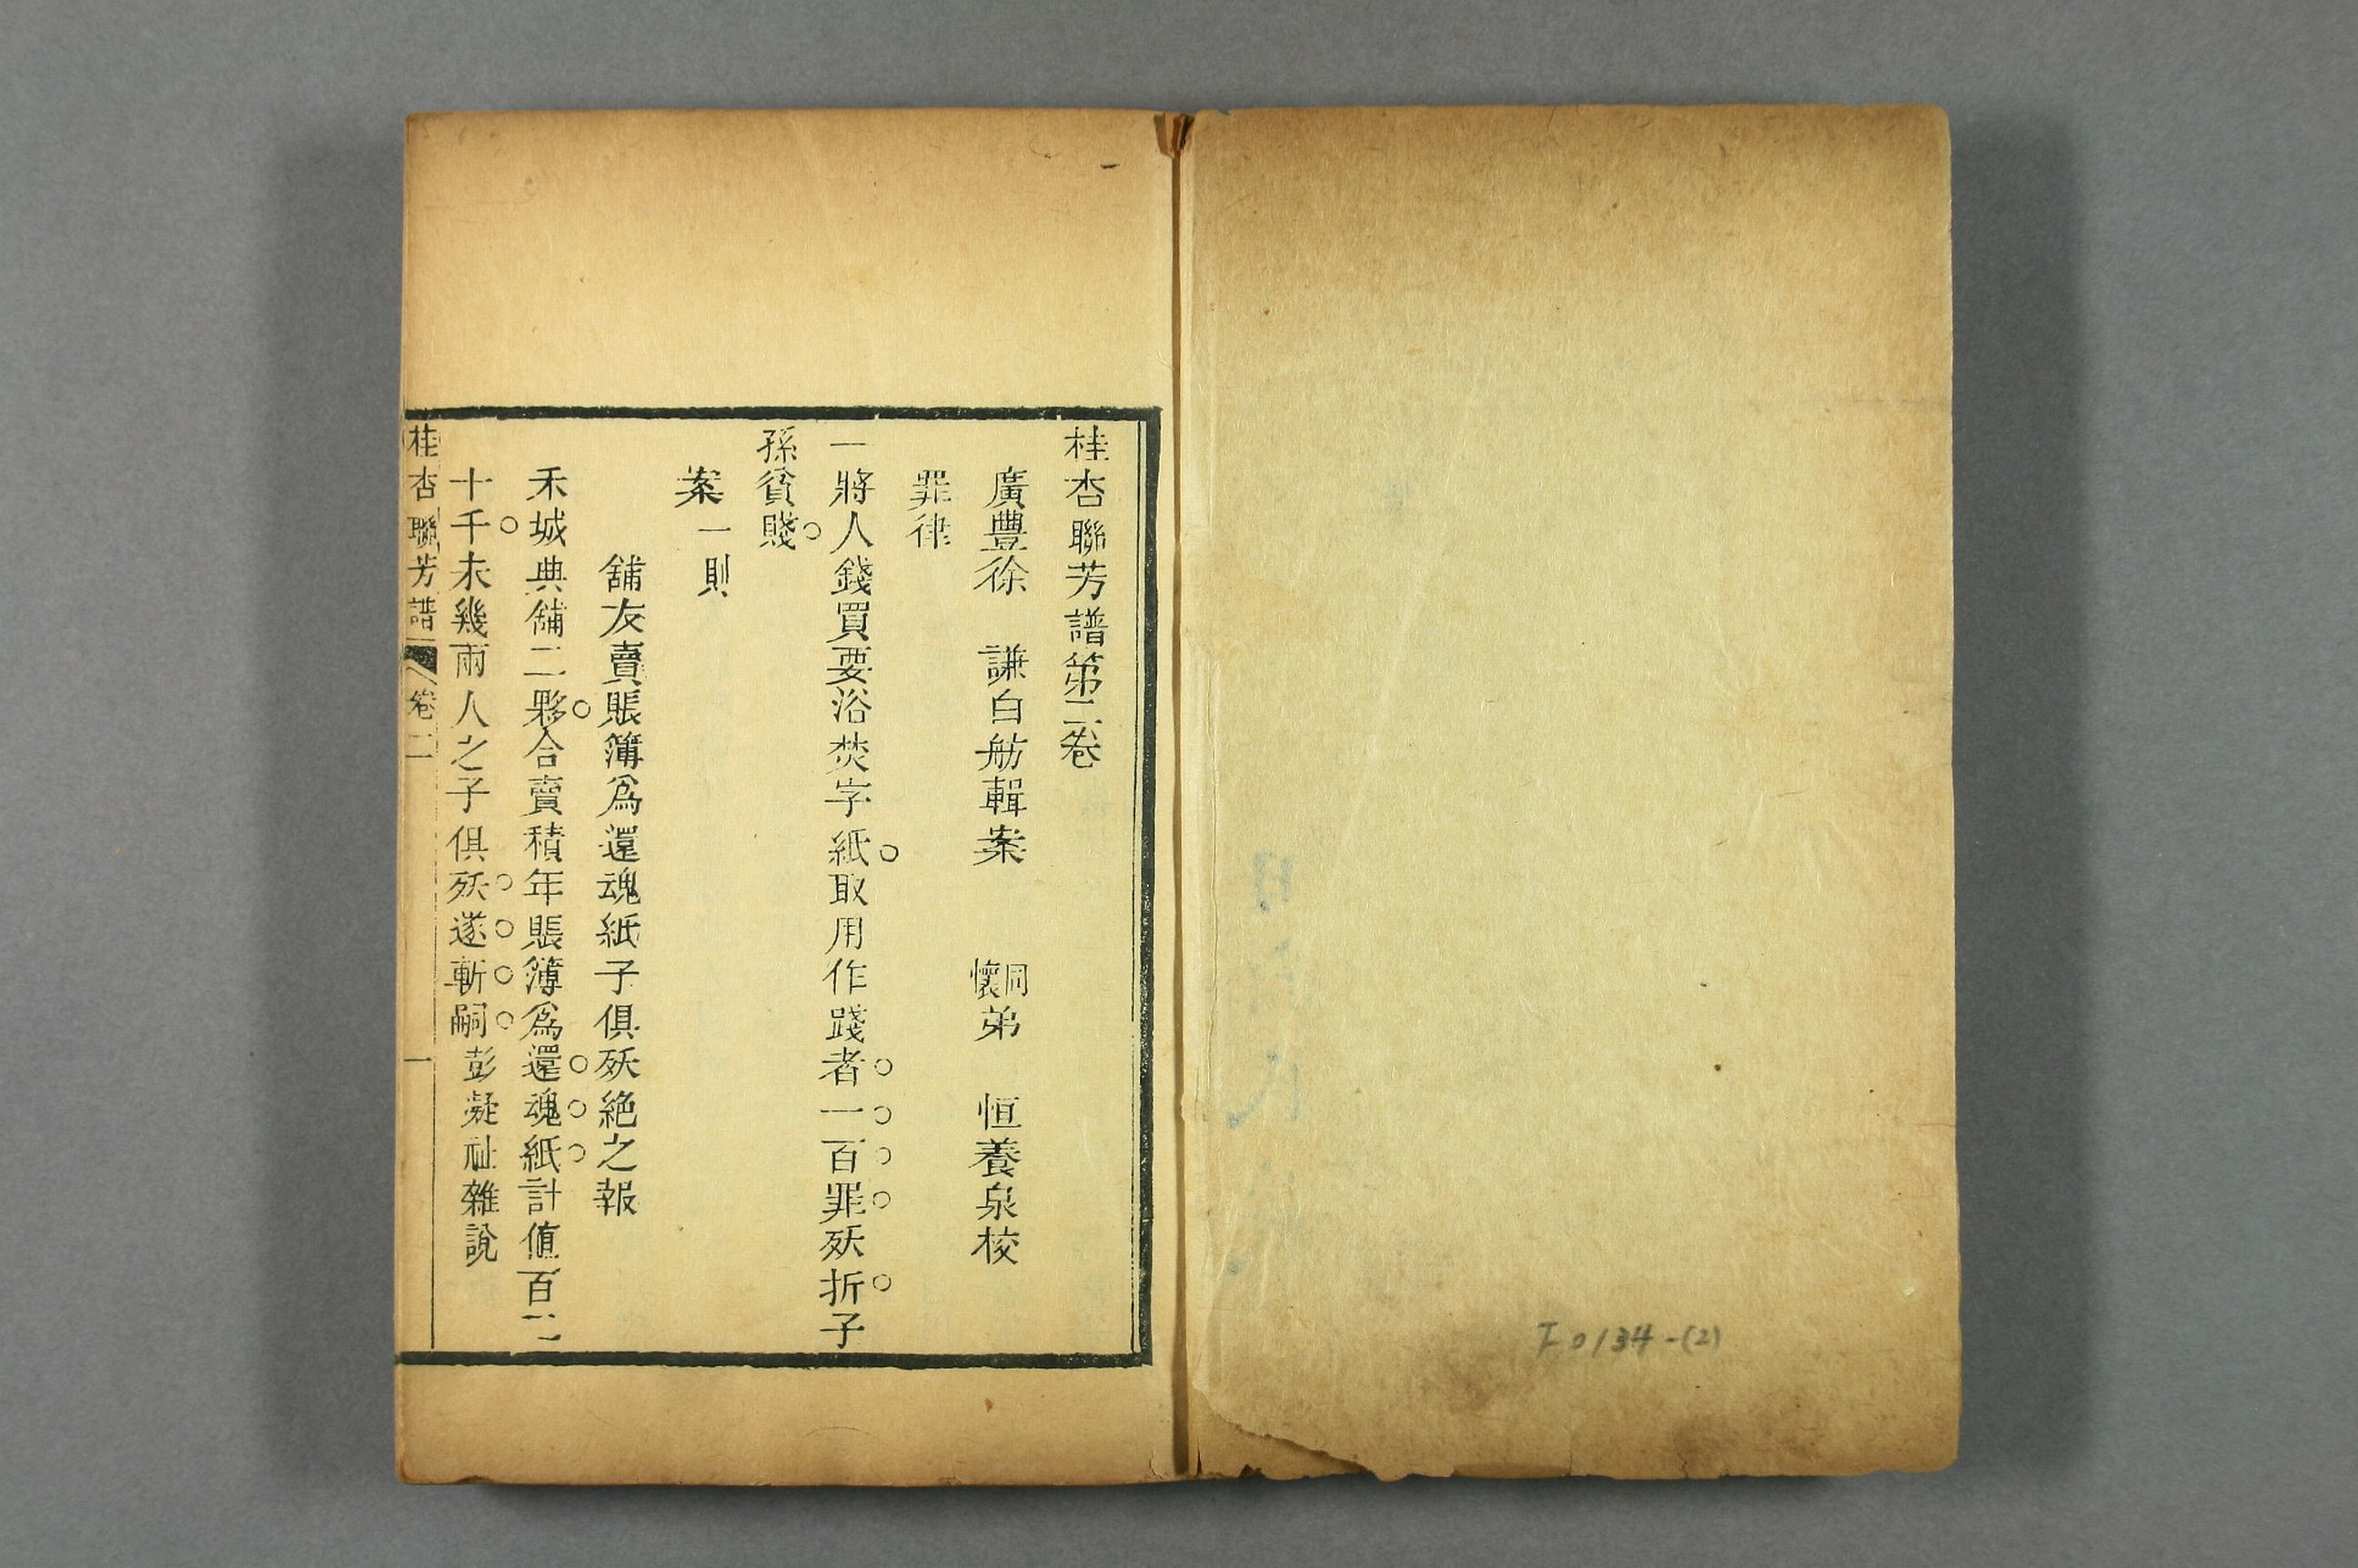 桂杏聯芳譜第二卷
廣豐徐 謙白舫輯案 同懷弟 恒養泉校
罪律
一將人錢買要浴焚字紙取用作踐者一百罪殀折子
孫貧賤
案一則
舖友賣賬簿爲還魂紙子俱殀絶之報
禾城典舖二夥合賣積年賬簿爲還魂紙計值百
十千未幾兩人之子俱殀遂斬嗣彭凝祉雜說
桂杏聯芳譜 卷二 一
F0134-(2)